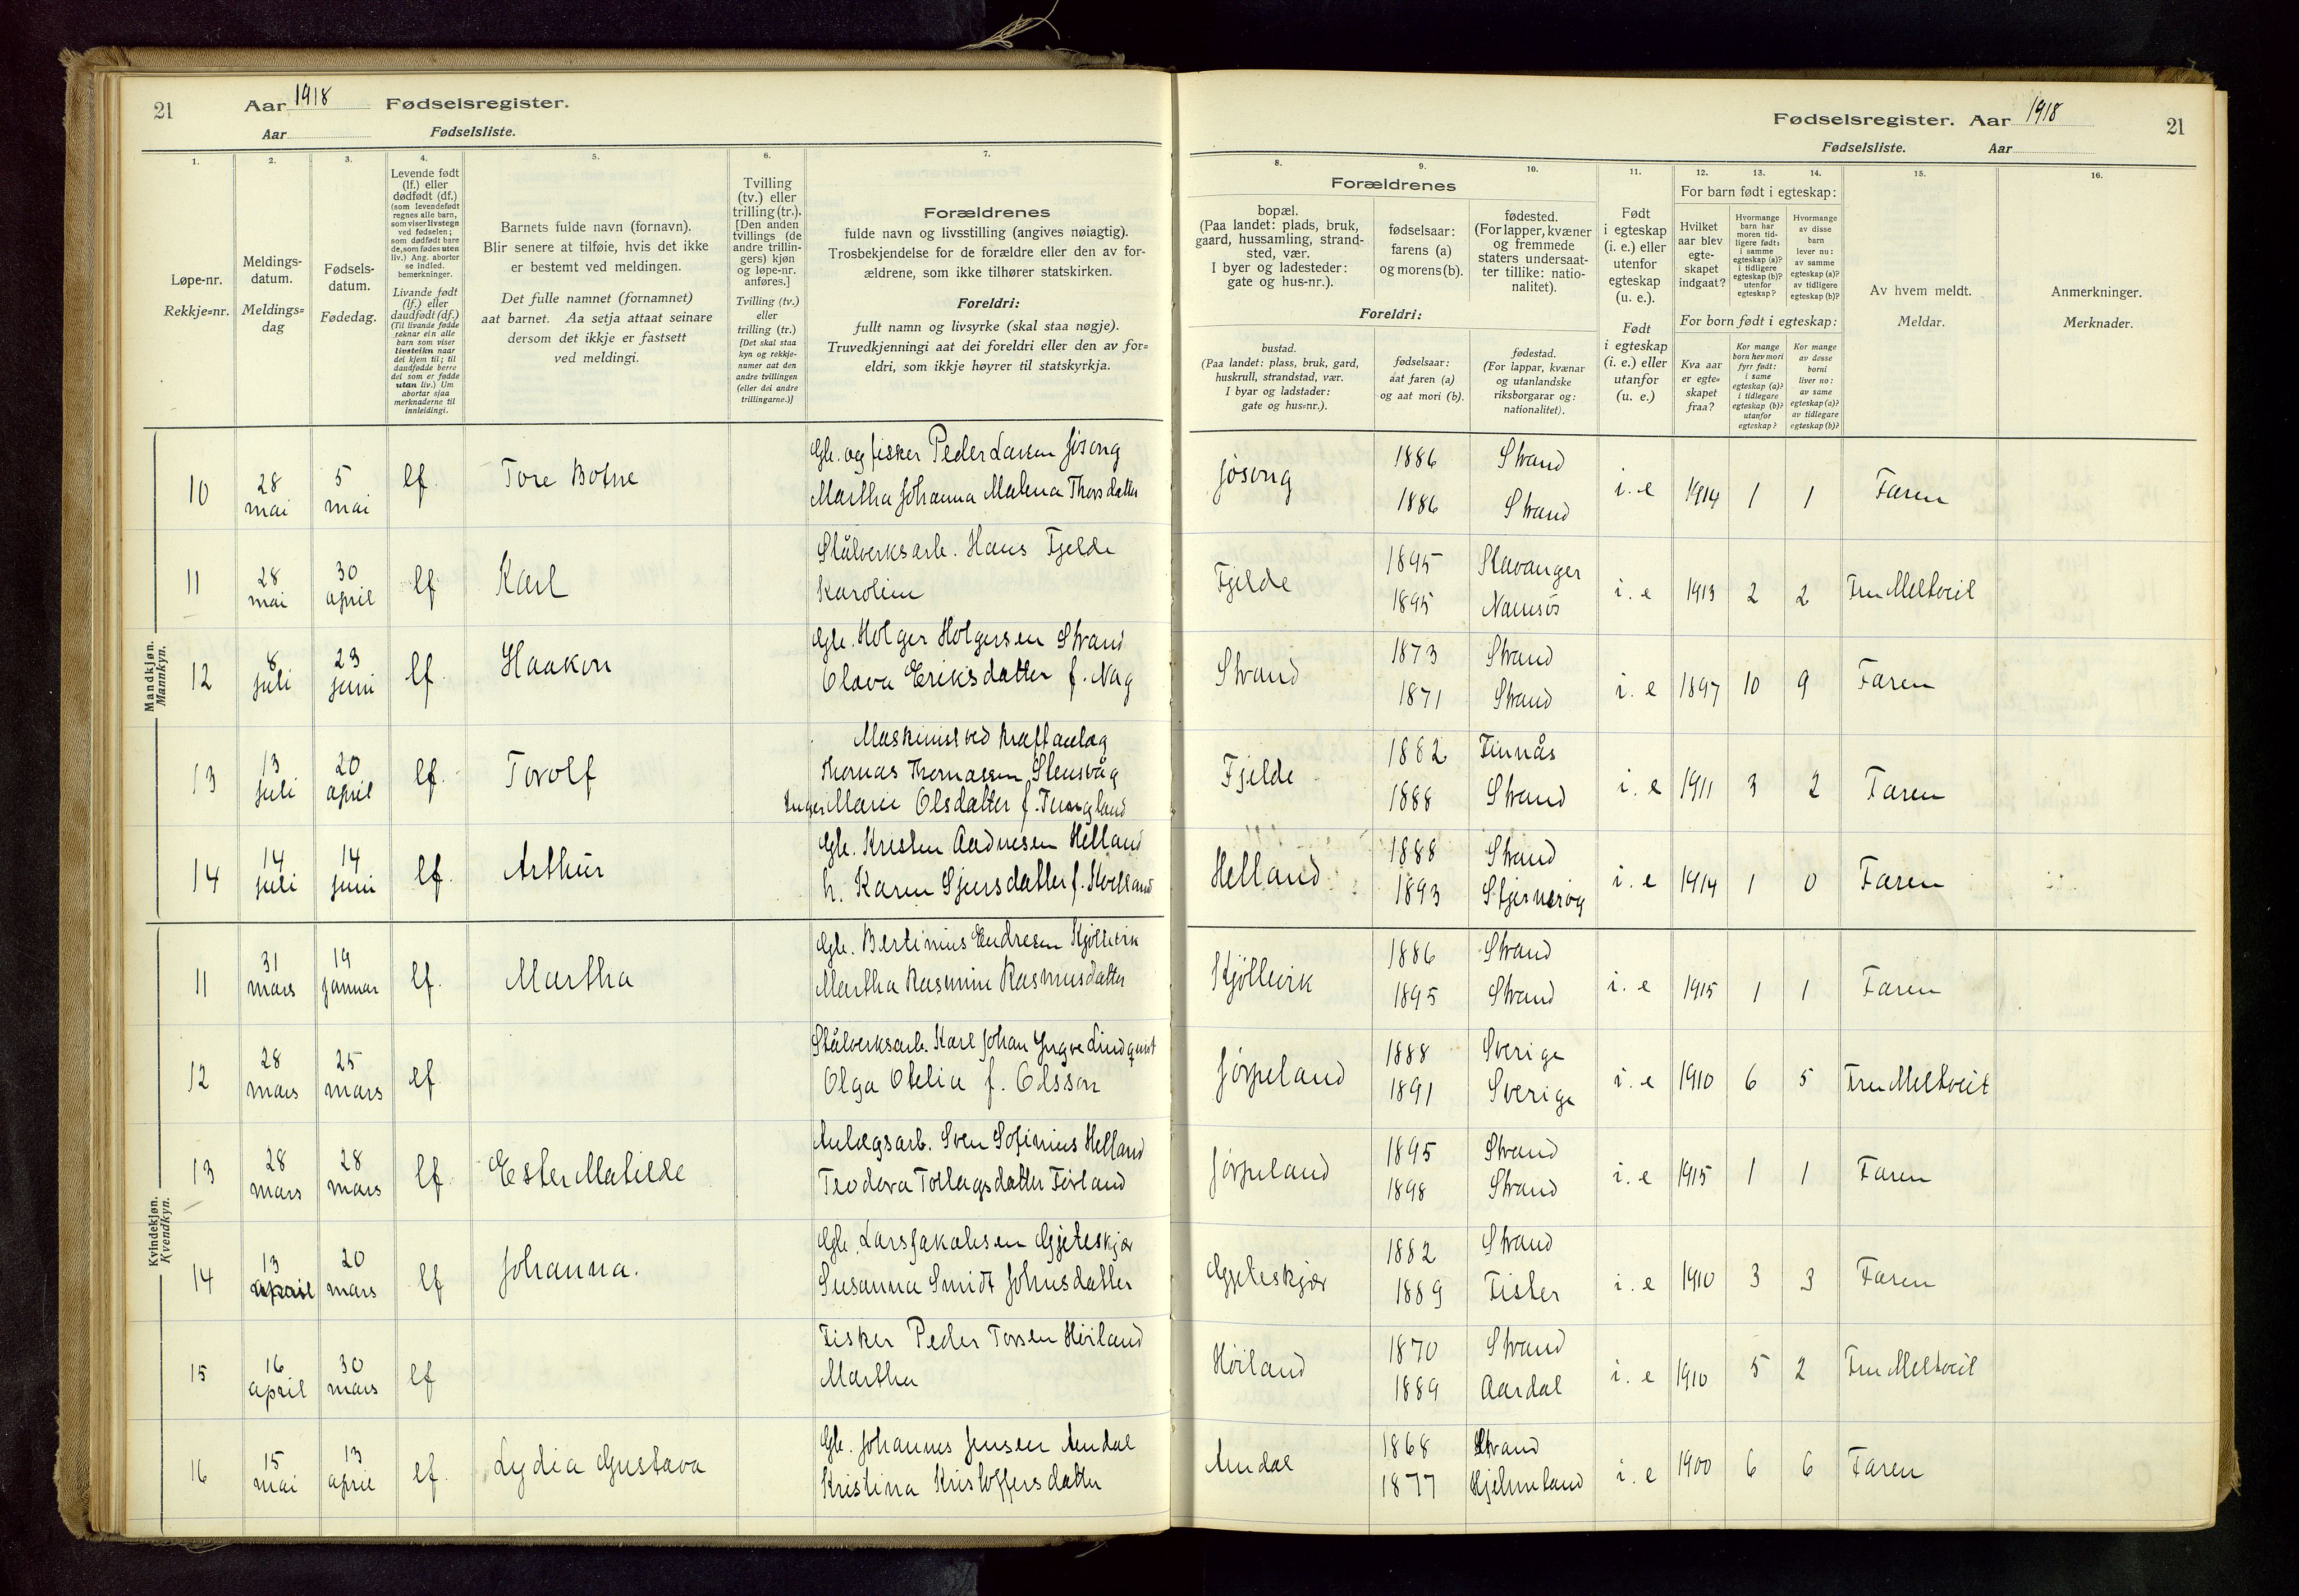 21 Aar 1918 Fødselsregister.
Aar Fødselsliste.
Fødselsregister. Aar 1918 21
Fødselsliste. Aar
1.
Løpe-nr.
Rekkje=nr.
2.
Meldings-
datum.
Meldings=
dag
3.
Fødsels-
datum.
Fødedag.
4.
Levende født
(lf.) eller
dødfødt (df.)
(som levendefødt
regnes alle barn,
som viser livstegn
ved fødselen;
som dødfødt bare
de, som fødes uten
liv.) Ang. aborter
se indled.
bemerkninger.
Livande født
(lf.) eller
daudfødt (df.)
(Til livande fødde
reknar ein alle
barn som viser
livsteikn naar
dei kjem til; til
daudfødde berre
dei som er fødde
utan liv.) Um
abortar sjaa
merknaderne til
innleidingi.
5.
Barnets fulde navn (fornavn).
Blir senere at tilføie, hvis det ikke
er bestemt ved meldingen.
Det fulle namnet (fornamnet)
aat barnet. Aa setja attaat seinare
dersom det ikkje er fastsett
ved meldingi.
6.
Tvilling
(tv.) eller
trilling (tr.).
[Den anden
tvillings (de
andre trillin-
gers) kjøn
og løpe-nr.
anføres.]
Tvilling (tv.)
eller
trilling (tr.)
[Det skal staa
kyn og rekkje-
numer aat den
andre tvillingen
(eller dei andre
trillingarne.)]
7.
Forældrenes
fulde navn og livsstilling (angives nøiagtig).
Trosbekjendelse for de forældre eller den av for-
ældrene, som ikke tilhører statskirken.
Foreldri:
fullt namn og livsyrke (skal staa nøgje).
Truvedkjenningi aat dei foreldri eller den av for=
eldri, som ikkje høyrer til statskyrkja.
Forældrenes
8.
bopæl.
(Paa landet: plads, bruk,
gaard, hussamling, strand-
sted, vær.
I byer og ladesteder:
gate og hus-nr.).
9.
fødselsaar:
farens (a)
og morens (b).
10.
fødested.
(For lapper, kvæner
og fremmede
staters undersaat-
ter tillike: natio-
nalitet).
Foreldri:
bustad.
(Paa landet: plass, bruk, gard,
huskrull, strandstad, vær.
I byar og ladstader:
gate og hus=nr.).
fødselsaar:
aat faren (a)
og aat mori (b).
fødestad.
(For lappar, kvænar
og utanlandske
riksborgarar og:
nationalitet).
11.
Født
i egteskap
(i. e.) eller
utenfor
egteskap
(u. e.).
Født
i egteskap
(i. e.) eller
utanfor
(u. e.)
12. 13. 14.
For barn født i egteskap:
Hvilket
aar blev
egte-
skapet
indgaat?
Hvormange
barn har
moren tid-
ligere født:
i samme
egteskap (a)?
i tidligere
egteskap (b)?
utenfor
egteskap?
Hvormange
av disse
barn
lever nu:
av samme
egteskap (a)?
av tidligere
egteskap (b)?
For born født i egteskap:
Kva aar
er egte=
skapet
fraa?
Kor mange
born hev mori
fyrr født:
i same
egteskap (a)?
i tidlegare
egteskap (b)?
utanfor
egteskap?
Kor mange
av desse
borni
liver no:
av same
egteskap (a)?
av tidlegare
egteskap (b)?
15.
Av hvem meldt.
Meldar.
16.
Anmerkninger.
Merknader.
Mandkjøn.
Mannkyn.
10 28 mai 5 mai lf. Tore Botne
Gb. og fisker Peder Larsen Jøsong
Martha Johanna Malena Thorsdatter
Jøsong 1886 Strand
1886 Strand
i. e 1914 1 1 Faren
11 28 mai 30 april lf Karl
Stålverksarb. Hans Fjelde
Karoline
Fjelde 1895 Stavanger
1895 Namsos
i. e 1913 2 2 Fru Meltveit
12 8 juli 23 juni lf. Haakon
Gb. Holger Holgersen Strand
Olava Eriksdatter f. Nag
Strand 1873 Strand
1871 Strand
i. e 1897 10 9 Faren
13 13 juli 20 april lf. Torolf
Maskinist ved kraftanlæg
Thomas Thomassen Stensvåg
Inger Marie Olsdatter f. Tungland
Fjelde 1882 Finnås
1888 Strand
i. e 1911 3 2 Faren
14 14 juli 14 juni lf. Arthur
Gb. Kristen Aadnesen Helland
h. Karen Sjursdatter f.
Helland 1888 Strand
1893 Stjernerøy
i. e 1914 1 0 Faren
Kvindekjøn.
Kvendkyn.
11 31 mars 19 januar lf. Martha
Gb. Bertinius Endresen Kjøllevik
Martha Rasmine Rasmusdatter
Kjøllevik 1886 Strand
1895 Strand
i. e 1915 1 1 Faren
12 28 mars 25 mars lf.
Stålverksarb. Karl Johan Yngve Lindquist
Olga Otelia f. Olsson
Jørpeland 1888 Sverige
1891 Sverige
i. e 1910 6 5 Fru Meltveit
13 28 mars 28 mars lf. Ester Matilde
Anlægsarb. Sven Sofinius Helland
Teodora Tollagsdatter Førland
Jørpeland 1895 Strand
1898 Strand
i. e 1915 1 1 Faren
14 13 april 20 mars lf Johanna.
Gb. Lars Jakobsen Gjeteskjær
Susanna Smidt Johnsdatter
Gjeteskjær 1882 Strand
1889 Fister
i. e 1910 3 3 Faren
15 16 april 30 mars lf
Fisker Peder Torsen Høiland
Martha
Høiland 1870 Strand
1889 Aardal
i. e 1910 5 2 Fru Meltveit
16 15 mai 13 april lf. Lydia Gustava
Gb. Johannes Jensen Amdal
Kristina Kristoffersdatter
Amdal 1868 Strand
1877 Hjelmeland
i. e 1900 6 6 Faren